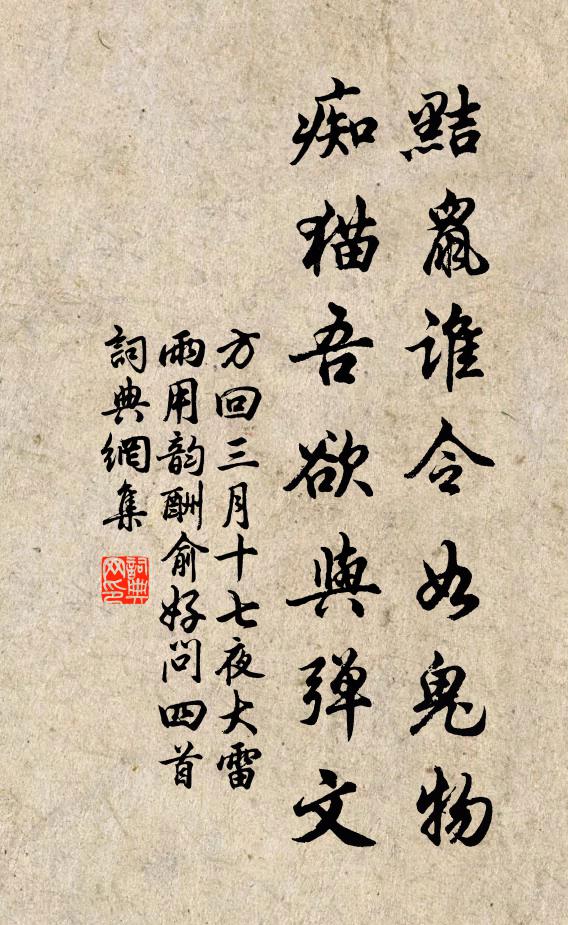 黠鼠谁令如鬼物
痴猫吾欲與弹文
方回三月十七夜大雷
雨用韵酬俞好问四首
詞典網集
詞典
网印